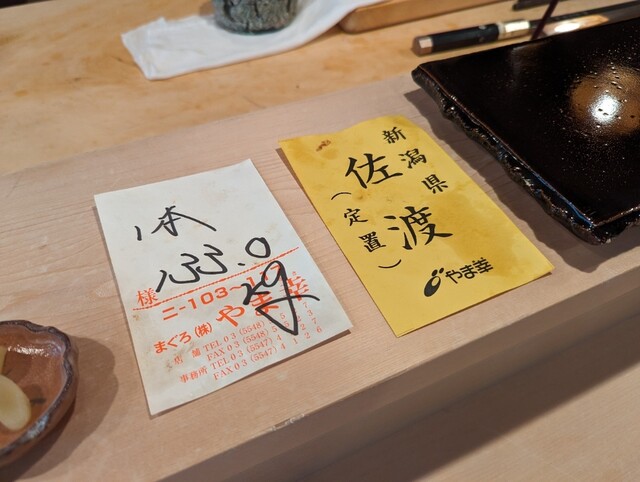 1本
133.0
kg
様
ニ-103~
まぐろ(株)やま幸
店舗 TEL 03(5548)
FAX 03(5548)5
事務所 TEL 03(5547)4
FAX 03(5547)4126
新潟県
佐渡
(定置)
やま幸